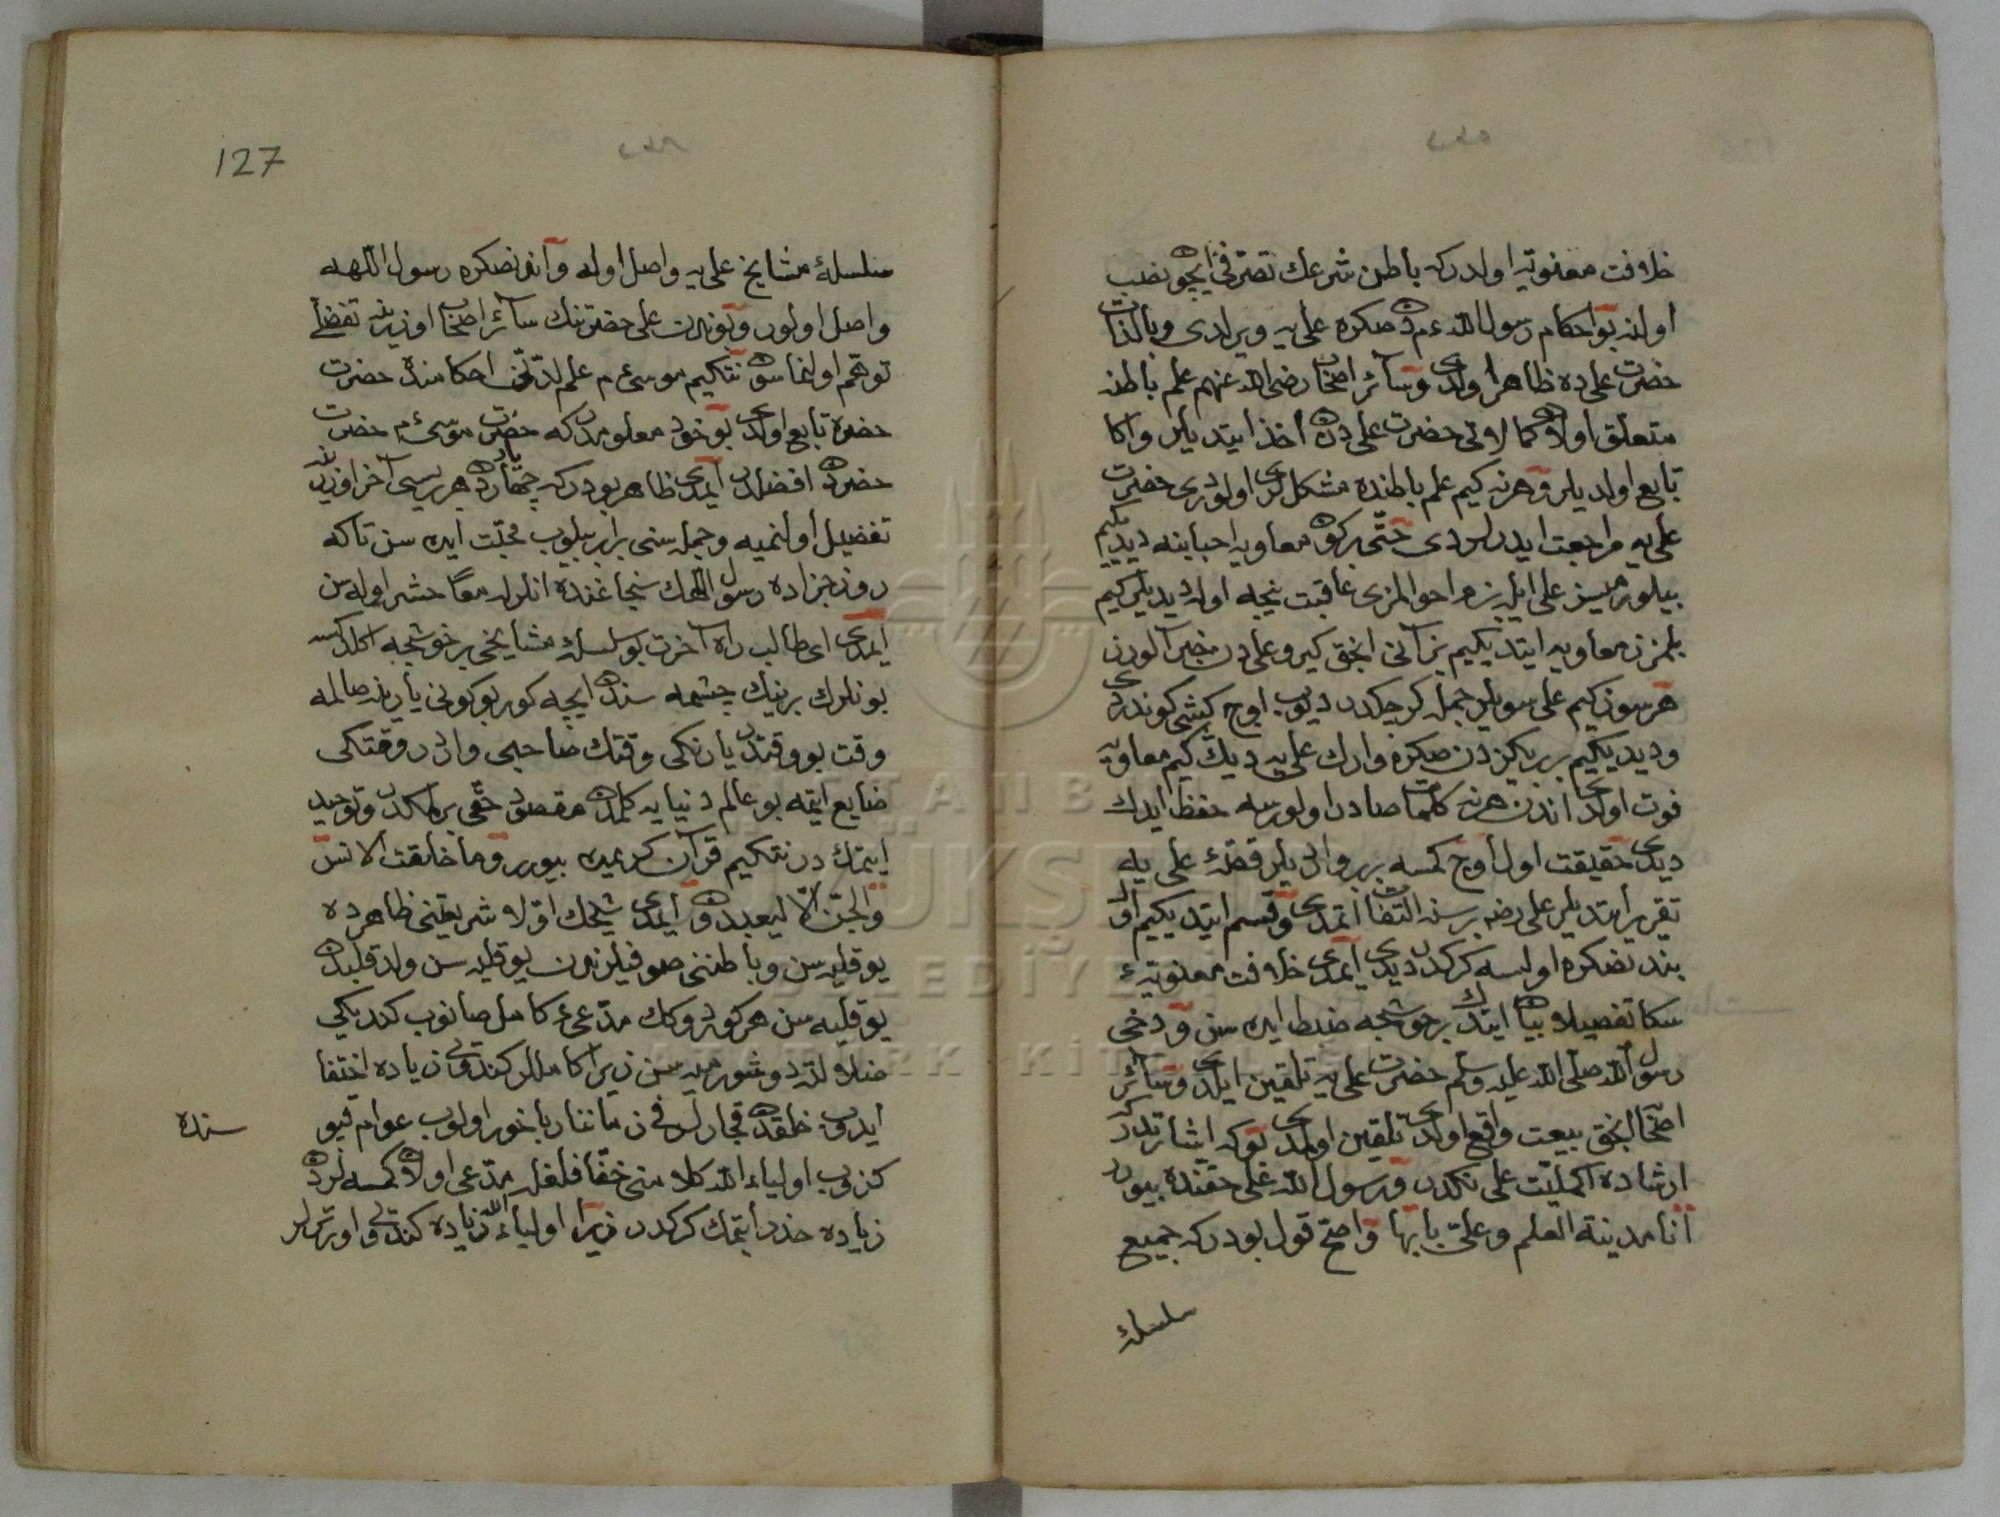 خلافت معنویه اولدر که باطن شرعك تصرفی ایچون نصب
اولنه بو احکام رسول الله ءم دن صکره علی یه ویرلدی و بالذات
حضرت علی ده ظاهر اولدی و سائر اصحاب رضی الله عنهم علم باطنه
متعلق اولان کمالاتی حضرت علی دن اخذ ایتدیلر و اکا
تابع اولدیلر و هر نه کیم علم باطنده مشکللری اولوردی حضرت
علی یه مراجعت ایدرلردی حتی بر کون معاویه احبابنه دیدیکیم
بیلورمیسز علی ایله بزم احوالمزی عاقبت نیجه اولور دیدیلر کیم
بلمزز معاویه ایتدیکیم بز آنی انجق کیرو علی دن خبر آلورز
هر سوز کیم علی سویلر جمله کرچکدر دیوب اوچ کیشی کوندردی
و دیدیکیم بر بریکزدن صکره وارك علی یه دیك کیم معاویه
فوت اولدی اندن هر نه کلمات صادر اولورسه حفظ ایدك
دیدی حقیقت اول اوچ کمسه بربر واردیلر قصه علی یه
تقریر ایتدیلر علی رضه برسنه التفات اتمدی و قسم ایتدیکیم اول
بندنصکره اولسه کرکدر دیدی ایمدی خلافت معنویه ء
سکا تفصیلا بیان ایتدك بر خوشجه ضبط ایده سن و دخی
رسول الله صلی الله علیه وسلم حضرت علی یه تلقین ایلدی و سائر
اصحابه انجق بیعت واقع اولدی تلقین اولمدی بو که اشارتدر که
ارشاده اکملیت علی نکدر و رسول الله علی حقنده بیورر
انا مدینة العلم وعلی بابها واضح قول بودر که جمیع
سلسلهٔ
127
سلسلهٔ مشایخ علی یه واصل اوله و آندنصکره رسول اللهه
واصل اولور و بوندن علی حضرتنك سائر اصحاب اوزرینه تفضلی
توهم اولنماسون نتکیم موسی ءم علم لدنی احکامنده حضرت
خضره تابع اولدی بو خود معلومدر که حضرت موسی ءم حضرت
خضردن افضلدر ایمدی ظاهر بودر که چهار یاردن هر بریسی آخر اوزرینه
تفضیل اولنمیه و جمله سنی برابر بیلوب محبت ایده سن تا که
روز جزاده رسول اللهك سنجاغنده انلرله معا حشر اوله سن
ایمدی ای طالب راه آخرت بو سلسلهٔ مشایخی بر خوشجه اکلدکسه
بونلرك برینك چشمه سندن ایچه کور بو کونی یارینه صالمه
وقت بو وقتدر یارنکی وقتك صاحبی واردر وقتکی
ضایع ایتمه بو عالم دنیایه کلمکدن مقصود حقی بلمکدر و توحید
ایتمك در نتکیم قرآن کریمده بیورر وما خلقت الانس
والجن الا لیعبدون ایمدی شیخك اول شریعتنی ظاهرده
یوقلیه سن و باطننی صوفیلرندن یوقلیه سن ولد قلبدن
یوقلیه سن هر کوردوکك مدعی ء کامل صانوب کندیکی
ضلالته دوشورمیه سن زیرا کامللر کندولرین زیاده اختفا
ایدوب خلقدن قچارلر فی زماننا ریاخور اولوب عوام قپو
سنده
کزوب اولیاء الله کلامنی خفّافلغله مدعی اولان کمسه لردن
زیاده حذر ایتمك کرکدر زیرا اولیاء الله زیاده کندولرین اورترلر